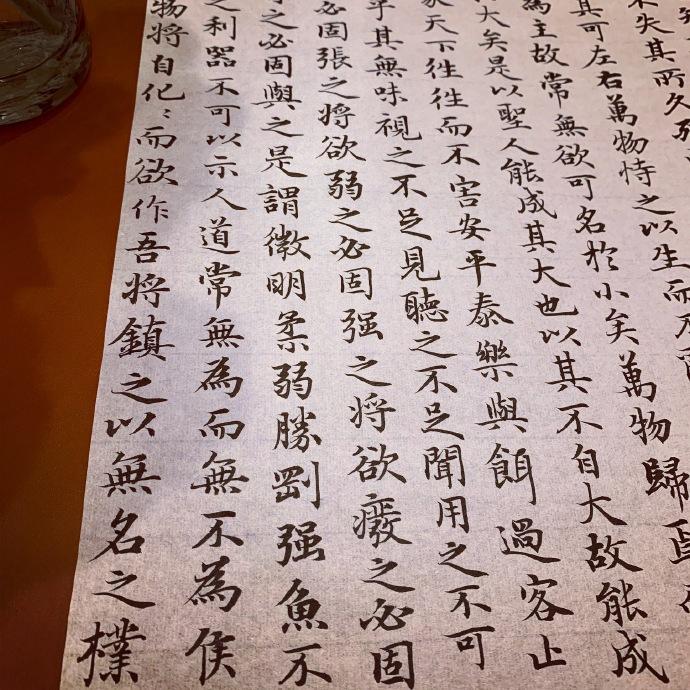 失其所久
其可左右萬物恃之以生而不
為主故常無欲可名於小矣萬物歸焉
大矣是以聖人能成其大也以其不自大故能成
天下往往而不害安平泰樂與餌過客止
乎其無味視之不足見聽之不足聞用之不可
必固張之將欲弱之必固强之將欲癈之必固
之必固與之是謂微明柔弱勝剛强魚不
之利器不可以示人道常無為而無不為侯
物將自化〻而欲作吾將鎮之以無名之樸